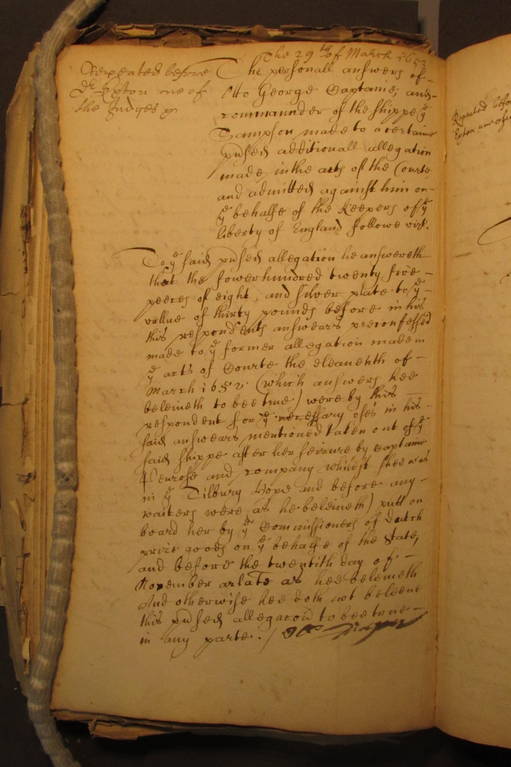 The 29th of March 1653
Repeated before
Dr Exton one of
the Judges
The personall answers of
Otto George Captaine, and
commander of the shippe ye
Sampson made to a certaine
additionall allegation
made in the acts of the Courte
and admitted against him on
ye behalfe of the Keepers of ye
liberty of England followe vizt.
To ye said allegation he answereth
that the fower hundred twenty five
peeces of eight, and silver plate to ye
vallue of thirty pounds before in his
this respondents answears
made to ye former allegation made in
ye acts of Courte the eleaventh of
March 1652 (which answers hee
beleiveth to bee true) were by this
respondent for ye necessary uses in his
said answears mentioned taken out of ye
said shippe after her seizure by Captaine
and company whilst shee was
in ye Tilbury Hope and before any
waiters were (as he beleiveth) putt on
board her by ye Commissioners of Dutch
prize goods on ye behalfe of the State,
and before the twentith day of
November as hee beleiveth
And otherwise hee doth not beleeve
this allegacon to bee true
in any parte. /
Repeated before
Exton one of